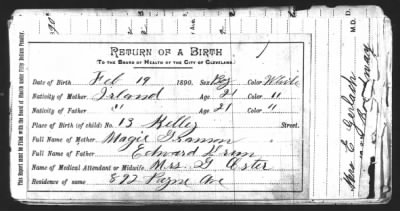 RETURN OF A BIRTH
TO THE BOARD OF HEALTH OF THE CITY OF CLEVELAND.
Date of Birth Feb 19 1890. Sex Boy Color White
Nativity of Mother Irland Age 21 Color "
Nativity of Father " Age 21 "
Place of Birth (of child) No. 13 Kelley Street.
Full Name of Mother Magie
Full Name of Father Edward
Name of Medical Attendant or Midwife Mrs. G
Residence of same 892 Payne Ave
This Report must be Filed with the Board of Health under Fifty Dollars Penalty.
M. D.
Mrs E Gerlach